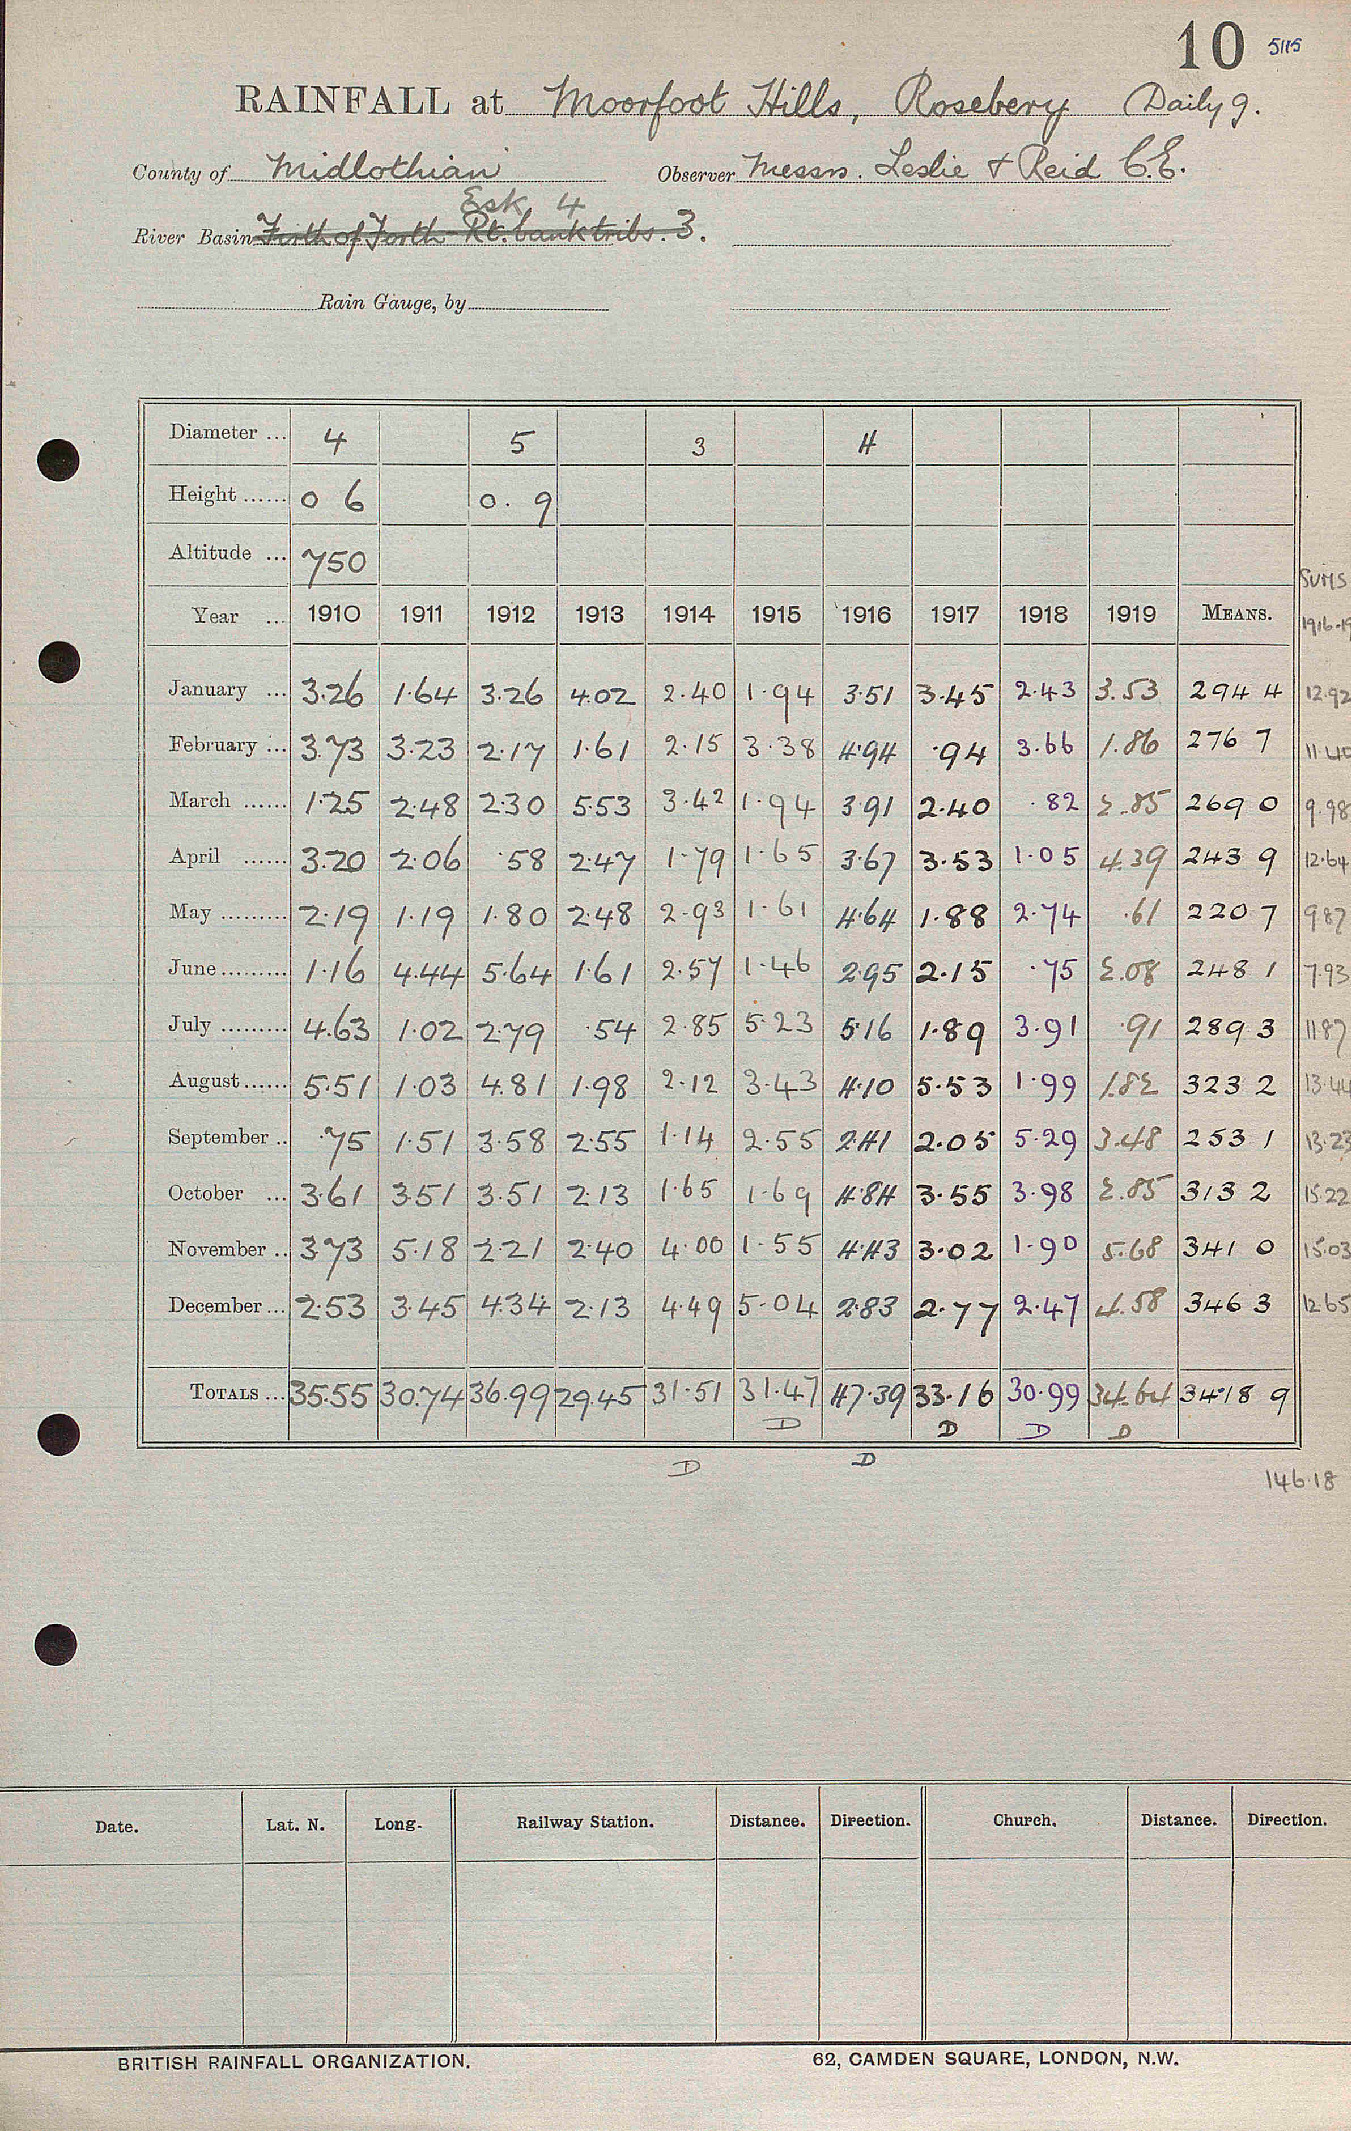 10 5115
RAINFALL at Moorfoot Hills, Rosebery Daily 9.
County of Midlothian Observer Messrs. Leslie & Reid C.E.
Esk 4
River Basin Firth of Forth Rt. bank tribs. 3.
Rain Gauge, by
Diameter ... 4 5 3 4
Height ...... 0 6 0. 9
Altitude ... 750
SUMS
Year ... 1910 1911 1912 1913 1914 1915 1916 1917 1918 1919 MEANS. 1916-19
January ... 3.26 1.64 3.26 4.02 2.40 1.94 3.51 3.45 2.43 3.53 294 4 12.92
February ... 3.73 3.23 2.17 1.61 2.15 3.38 4.94 .94 3.66 1.86 276 7 11.40
March ...... 1.25 2.48 2.30 5.53 3.42 1.94 3.91 2.40 .82 2.85 269 0 9.98
April ...... 3.20 2.06 .58 2.47 1.79 1.65 3.67 3.53 1.05 4.39 243 9 12.64
May ......... 2.19 1.19 1.80 2.48 2.93 1.61 4.64 1.88 2.74 .61 220 7 9.87
June ......... 1.16 4.44 5.64 1.61 2.57 1.46 2.95 2.15 .75 2.08 248 1 7.93
July ......... 4.63 1.02 2.79 .54 2.85 5.23 5.16 1.89 3.91 .91 289 3 11.87
August ...... 5.51 1.03 4.81 1.98 2.12 3.43 4.10 5.53 1.99 1.82 323 2 13.44
September .. .75 1.51 3.58 2.55 1.14 2.55 2.41 2.05 5.29 3.48 253 1 13.23
October ... 3.61 3.51 3.51 2.13 1.65 1.69 4.84 3.55 3.98 2.85 313 2 15.22
November .. 3.73 5.18 2.21 2.40 4.00 1.55 4.43 3.02 1.90 5.68 341 0 15.03
December ... 2.53 3.45 4.34 2.13 4.49 5.04 2.83 2.77 2.47 4.58 346 3 12.65
TOTALS ... 35.55 30.74 36.99 29.45 31.51 31.47 47.39 33.16 30.99 34.64 3418 9
D D D D
D D
146.18
Date. Lat. N. Long. Railway Station. Distance. Direction. Church. Distance. Direction.
BRITISH RAINFALL ORGANIZATION. 62, CAMDEN SQUARE, LONDON, N.W.